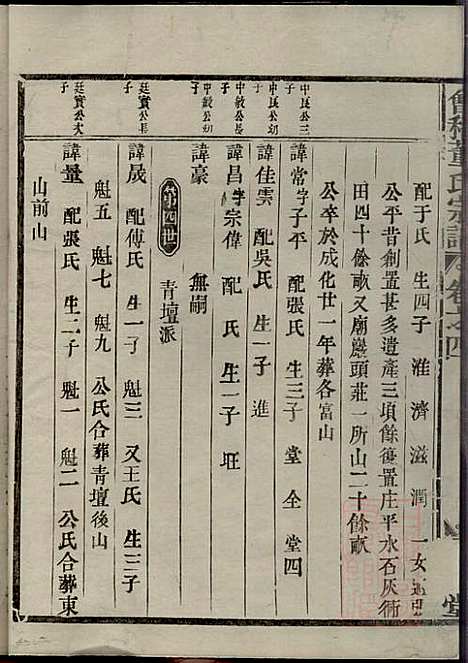 會稽董氏宗譜 卷之四
堂
配于氏 生四子 淮 濟 滋 潤 一女適
公平昔創置甚多遺產三頃餘復置庄平水石灰
田四十餘畝又廟巖頭莊一所山二十餘畝
公卒於成化廿一年葬各富山
中良公三子
諱常字子平 配張氏 生三子 堂 全 堂四
中良公幼子
諱佳雲 配吳氏 生一子 進
中敏公長子
諱昌字宗偉 配 氏 生一子 旺
中敏公幼子
諱豪 無嗣
第四世 青壇派
廷實公長子
諱晟 配傅氏 生一子 魁三 又王氏 生三子
魁五 魁七 魁九 公氏合葬青壇後山
廷實公次子
諱量 配張氏 生二子 魁一 魁二 公氏合葬東
山前山